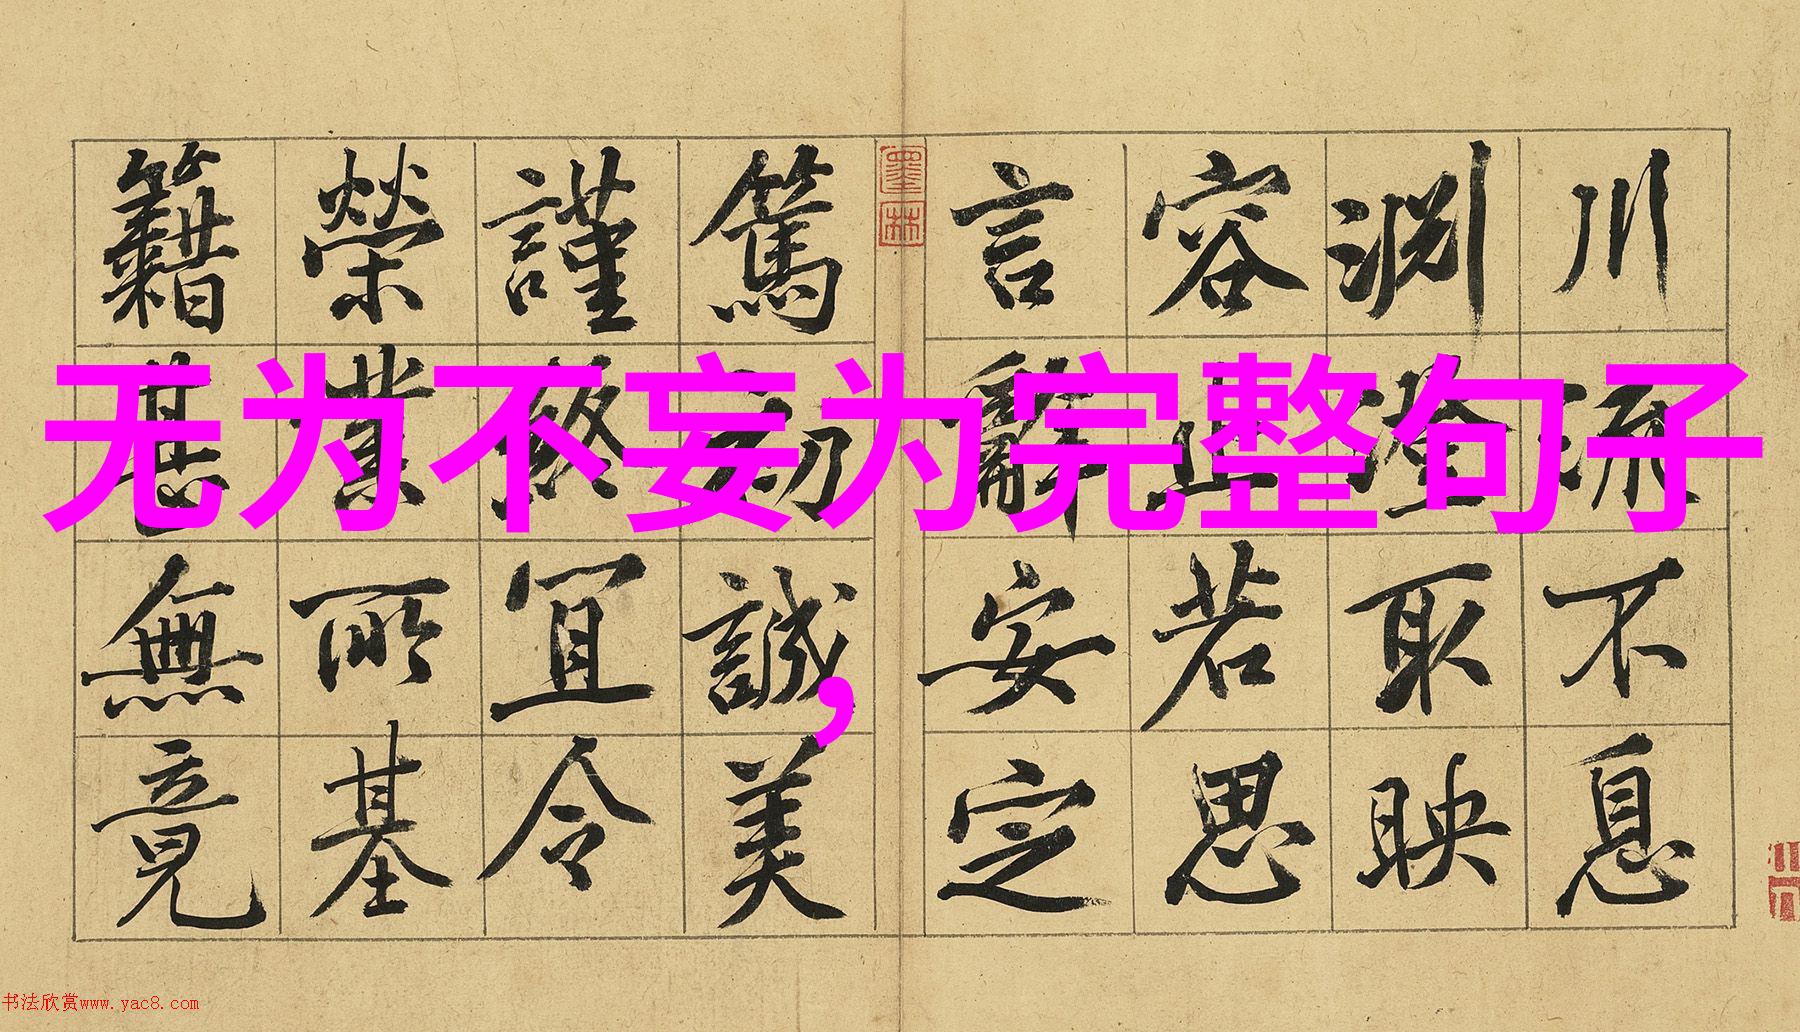 无为不妄为完整句子
，
川流不息
淵澄取映
容止若思
言辭安定
墨林
篤初誠美
謹終宜令
榮業所基
籍甚無竟
书法欣赏www.yac8.com